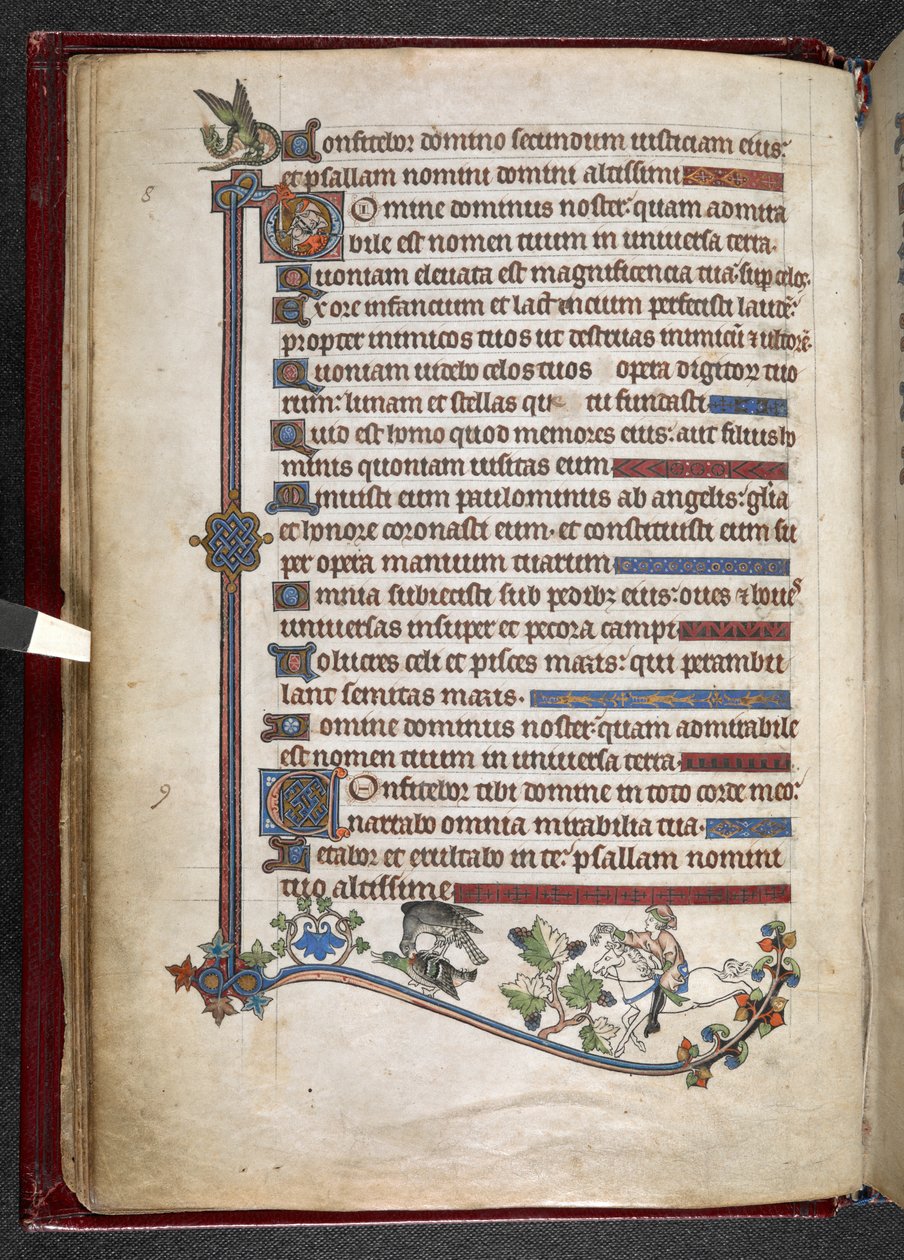 Confitebor domino secundum iusticiam eius:
et psallam nomini domini altissimi
8
Domine dominus noster: quam admira
bile est nomen tuum in universa terra.
Quoniam elevata est magnificencia tua: sup celos.
Ex ore infancium et lactancium perfecisti laudē:
propter inimicos tuos ut destruas inimicū ⁊ ultorē.
Quoniam uidebo celos tuos opera digitoꝝ tuo
rum: lunam et stellas que tu fundasti
Quid est homo quod memores eius: aut filius ho
minis quoniam uisitas eum.
Minuisti eum paulominus ab angelis: gl̄ia
et honore coronasti eum. et constituisti eum su
per opera manuum tuarum
Omnia subiecisti sub pedibȝ eius: oues ⁊ boues
universas insuper et pecora campi
Volucres celi et pisces maris: qui perambu
lant semitas maris.
Domine dominus noster: quam admirabile
est nomen tuum in universa terra.
9
Confitebor tibi domine in toto corde meo:
narrabo omnia mirabilia tua.
Letabor et exultabo in te: psallam nomini
tuo altissime